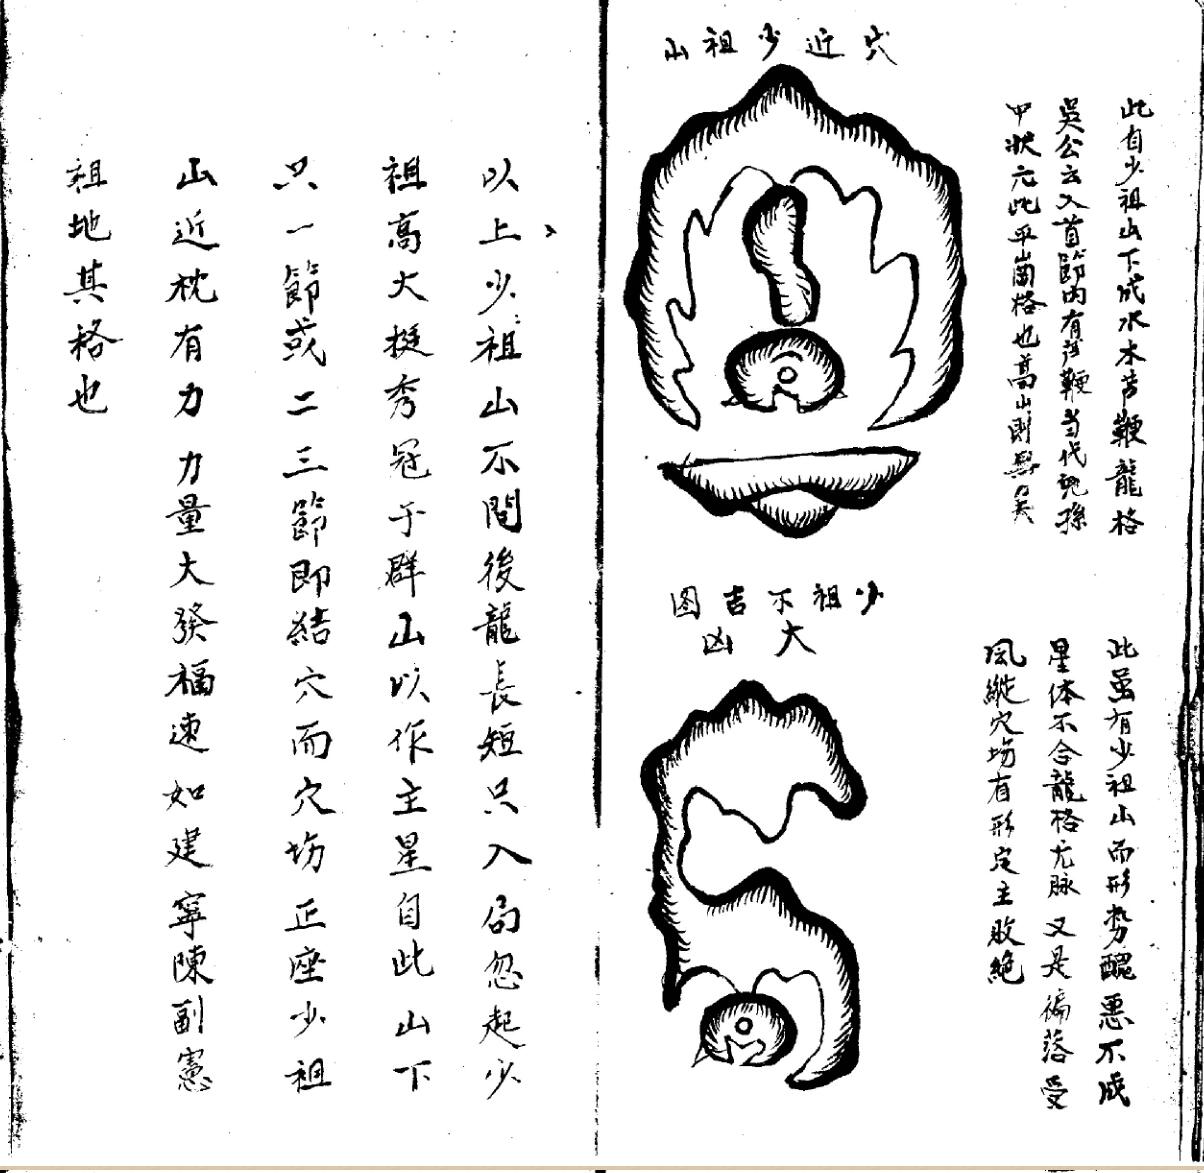 穴近少祖山
此自少祖山下成水木芦鞭龍格
吳公云入首節内有芦鞭当代兒孫
甲状元此平崗格也高山則無矣
少祖不吉图
大凶
此虽有少祖山而形势醜悪不成
星体不合龍格无脉又是徧落受
風縱穴塲有形定主败絶
以上少祖山不問後龍長短只入局忽起少
祖高大挺秀冠于群山以作主星自此山下
只一節或二三節即結穴而穴塲正座少祖
山近枕有力力量大發福速如建寧陳副憲
祖地其格也